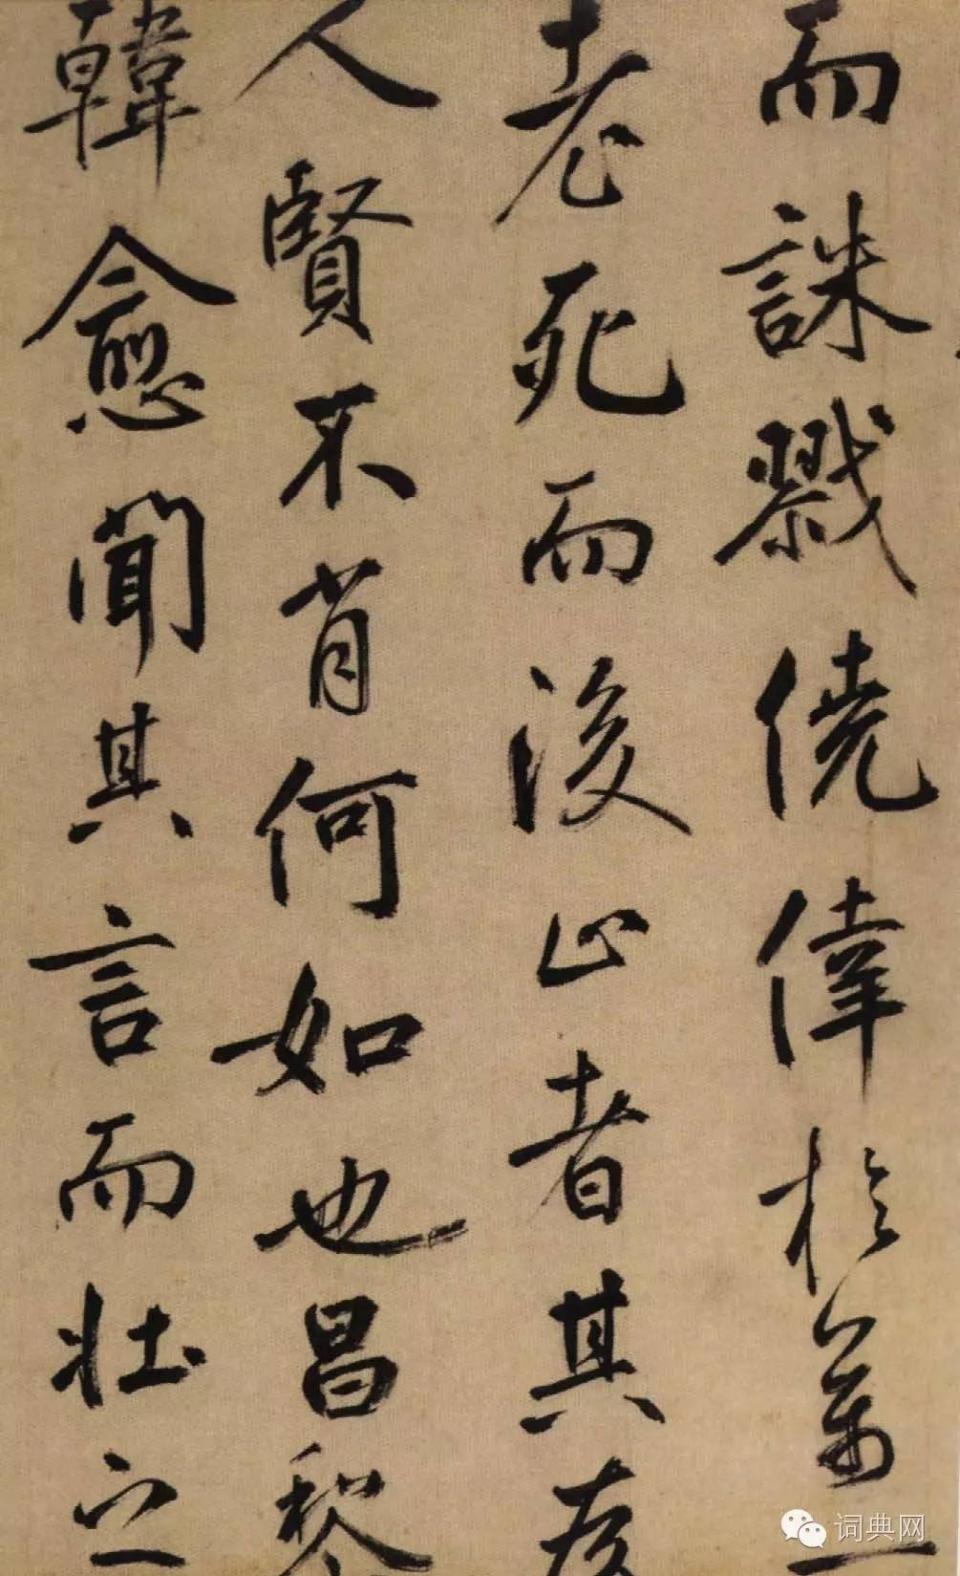 而誅戮僥倖於萬一
老死而後止者其於為
人賢不肖何如也昌黎
韓愈聞其言而壯之
词典网